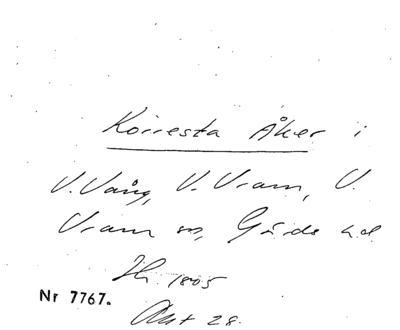 Korresta Åker i
V. Vång, V. Vram, V.
Vram sn, Gärds hd.
Sk. 1805
Akt 28.
Nr 7767.